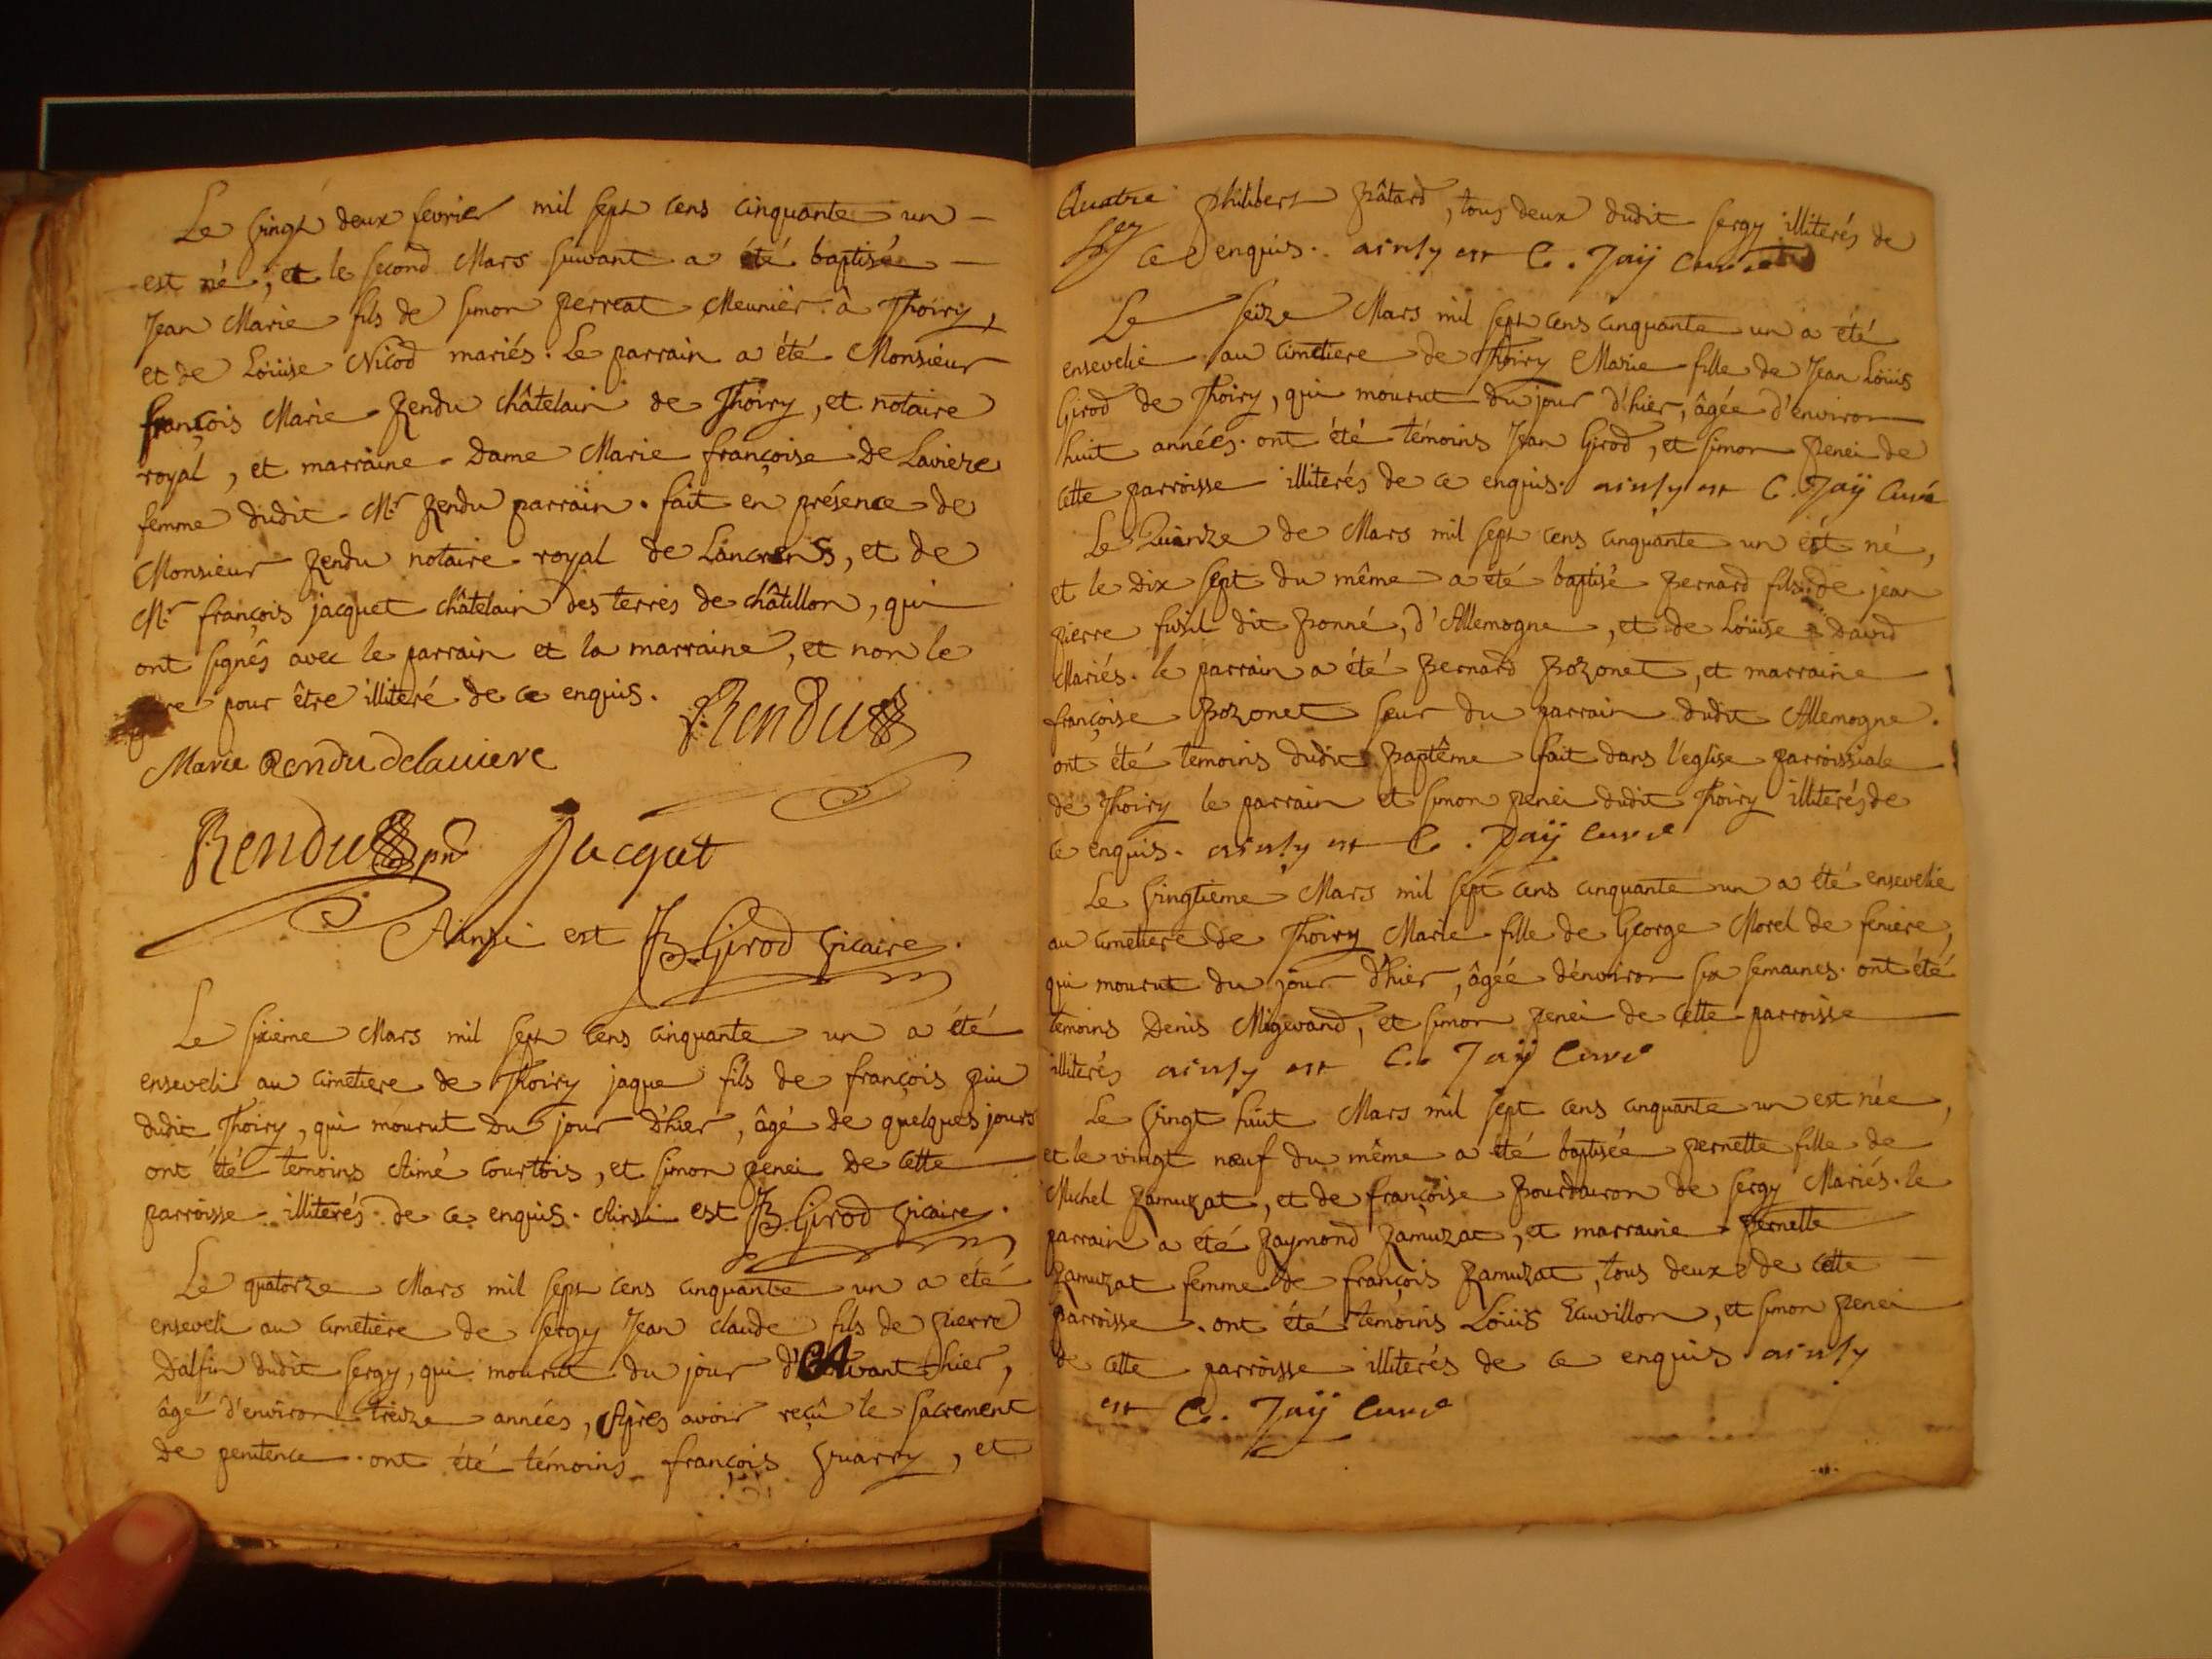 Le vingt deux fevrier mil sept cens cinquante un
est né, et le second Mars suivant a été baptisé
Jean Marie fils de simon perreat Meunier à Thoiry,
et de Loüise Nicod mariés. Le parrain a été Monsieur
françois Marie Rendu châtelain de Thoiry, et notaire
royal, et marraine Dame Marie françoise De Laviere
femme dudit Mr Rendu parrain. fait en présence de
Monsieur Rendu notaire royal de Lancrans, et de
Mr françois jacquet châtelain des terres de châtillon, qui
ont signés avec le parrain et la marraine, et non le
pour être illiteré de ce enquis. Rendu
Marie Rendu delaviere
Rendu pnt Jacquet
Ainsi est JB. Girod vicaire.
Le sixième Mars mil sept cens cinquante un a été
enseveli au cimetiere de Thoiry jaque fils de françois
dudit Thoiry, qui mourut du jour d'hier, âgé de quelques jours
ont été temoins Aimé Courtois, et simon Benei de cette
parroisse illiterés de ce enquis. Ainsi est JB. Girod vicaire.
Le quatorze Mars mil sept cens cinquante un a été
enseveli au cimetière de sergy Jean claude fils de pierre
Dalfin dudit sergy, qui mourut du jour d'Avant hier,
âgé d'environ treize années, Après avoir reçû le sacrement
de penitence. ont été témoins françois vuarry, et
Quatre philibert Bâtard, tous deux dudit sergy illiterés de
ce enquis. ainsy est C. Jaÿ Curé
Le seize Mars mil sept cens cinquante un a été
ensevelie au cimetiere de Thoiry Marie fille de Jean Loüis
Girod de Thoiry, qui mourut du jour d'hier, âgée d'environ
huit années. ont été témoins Jean Girod, et simon Benei de
cette parroisse illiterés de ce enquis. ainsy est C. Jaÿ Curé
Le Quinze de Mars mil sept cens cinquante un est né,
et le dix sept du même a été baptisé Bernard fils de jean
pierre fusil dit Bonné, d'Allemogne, et de Loüise David
Mariés. le parrain a été Bernard Bozonet, et marraine
françoise Bozonet sœur du parrain dudit Allemogne.
ont été temoins dudit Baptême fait dans l'eglise parroissiale
de Thoiry le parrain et simon Benei dudit Thoiry illiterés de
ce enquis. ainsy est C. Jaÿ Curé
Le vingtième Mars mil sept cens cinquante un a été ensevelie
au cimetiere de Thoiry Marie fille de George Morel de feniere,
qui mourut du jour d'hier, âgée d'environ six semaines. ont été
temoins Denis Migevand, et simon Benei de cette parroisse
illiterés ainsy est C. Jaÿ Curé
Le vingt huit Mars mil sept cens cinquante un est née,
et le vingt nœuf du même a été baptisée pernette fille de
Michel Ramuzat, et de françoise Bourdairon de sergy Mariés. le
parrain a été Raymond Ramuzat, et marraine pernette
Ramuzat femme de françois Ramuzat, tous deux de cette
parroisse. ont été temoins Loüis Eauvillon, et simon Benei
de cette parroisse illiterés de ce enquis. ainsy
est C. Jaÿ Curé